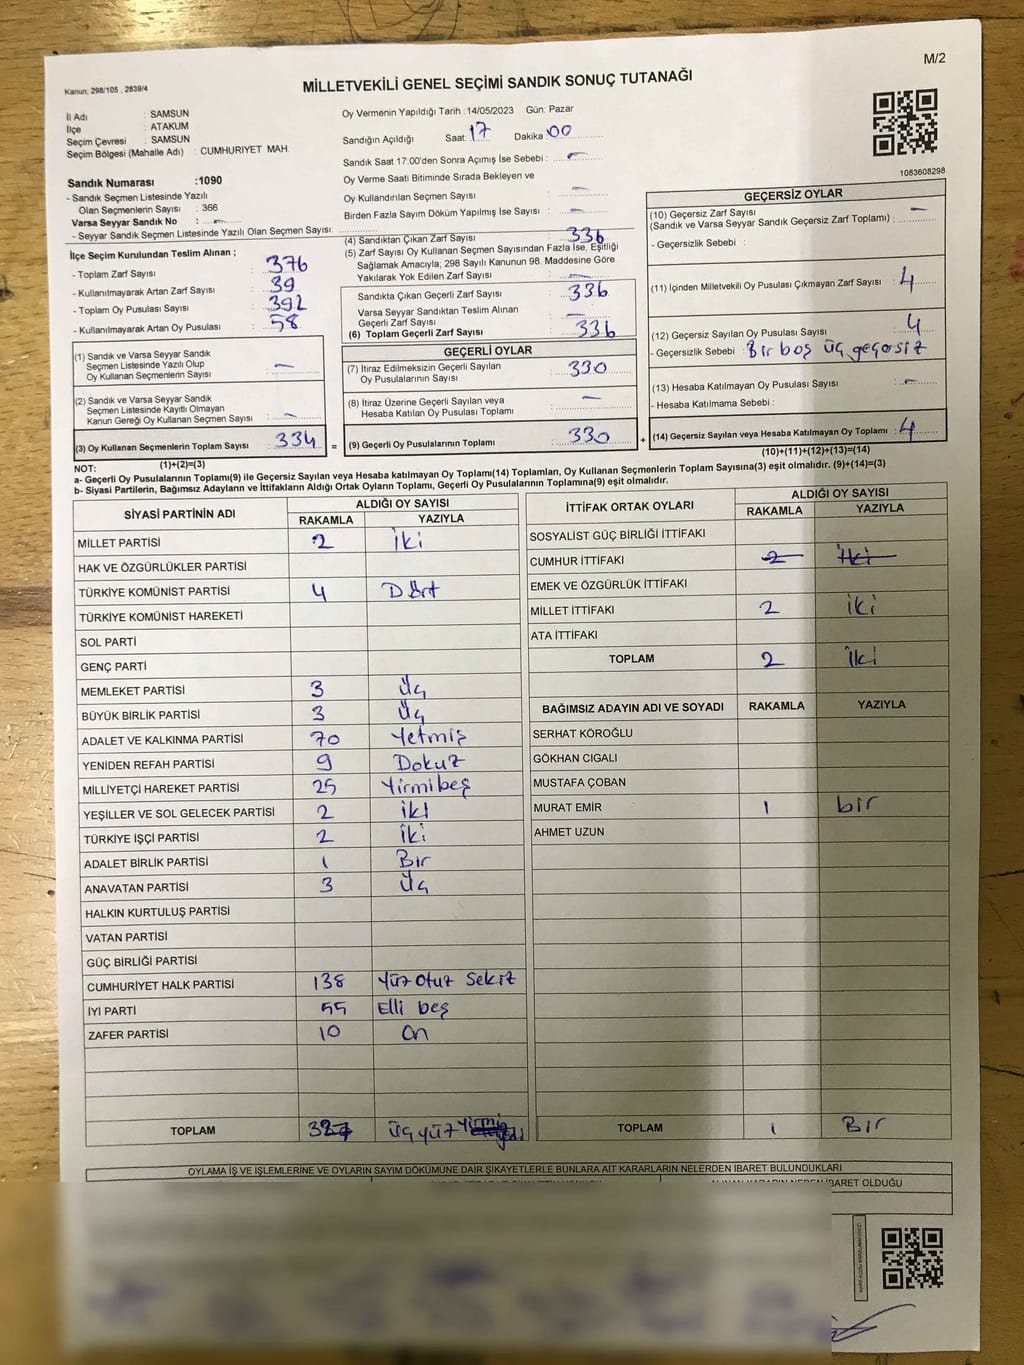 M/2
Kanun: 298/105 , 2839/4
MİLLETVEKİLİ GENEL SEÇİMİ SANDIK SONUÇ TUTANAĞI
İl Adı : SAMSUN
İlçe : ATAKUM
Seçim Çevresi : SAMSUN
Seçim Bölgesi (Mahalle Adı) : CUMHURIYET MAH.
Sandık Numarası :1090
- Sandık Seçmen Listesinde Yazılı
Olan Seçmenlerin Sayısı : 366
Varsa Seyyar Sandık No : -
- Seyyar Sandık Seçmen Listesinde Yazılı Olan Seçmen Sayısı:
Oy Vermenin Yapıldığı Tarih :14/05/2023 Gün: Pazar
Sandığın Açıldığı Saat: 17 Dakika :00
Sandık Saat 17:00'den Sonra Açımış İse Sebebi : -
Oy Verme Saati Bitiminde Sırada Bekleyen ve
Oy Kullandırılan Seçmen Sayısı : -
Birden Fazla Sayım Döküm Yapılmış İse Sayısı : -
1083608298
İlçe Seçim Kurulundan Teslim Alınan ;
- Toplam Zarf Sayısı : 376
- Kullanılmayarak Artan Zarf Sayısı : 39
- Toplam Oy Pusulası Sayısı : 392
- Kullanılmayarak Artan Oy Pusulası : 58
(1) Sandık ve Varsa Seyyar Sandık
Seçmen Listesinde Yazılı Olup
Oy Kullanan Seçmenlerin Sayısı : -
(2) Sandık ve Varsa Seyyar Sandık
Seçmen Listesinde Kayıtlı Olmayan
Kanun Gereği Oy Kullanan Seçmen Sayısı : -
(3) Oy Kullanan Seçmenlerin Toplam Sayısı : 334
(1)+(2)=(3)
(4) Sandıktan Çıkan Zarf Sayısı : 336
(5) Zarf Sayısı Oy Kullanan Seçmen Sayısından Fazla İse, Eşitliği
Sağlamak Amacıyla; 298 Sayılı Kanunun 98. Maddesine Göre
Yakılarak Yok Edilen Zarf Sayısı : -
Sandıkta Çıkan Geçerli Zarf Sayısı : 336
Varsa Seyyar Sandıktan Teslim Alınan
Geçerli Zarf Sayısı : -
(6) Toplam Geçerli Zarf Sayısı : 336
GEÇERLİ OYLAR
(7) İtiraz Edilmeksizin Geçerli Sayılan
Oy Pusulalarının Sayısı : 330
(8) İtiraz Üzerine Geçerli Sayılan veya
Hesaba Katılan Oy Pusulası Toplamı : -
= (9) Geçerli Oy Pusulalarının Toplamı : 330
GEÇERSİZ OYLAR
(10) Geçersiz Zarf Sayısı
(Sandık ve Varsa Seyyar Sandık Geçersiz Zarf Toplamı) : -
- Geçersizlik Sebebi :
(11) İçinden Milletvekili Oy Pusulası Çıkmayan Zarf Sayısı : 4
(12) Geçersiz Sayılan Oy Pusulası Sayısı : 4
- Geçersizlik Sebebi : Bir boş üç geçersiz
(13) Hesaba Katılmayan Oy Pusulası Sayısı : -
- Hesaba Katılmama Sebebi :
+ (14) Geçersiz Sayılan veya Hesaba Katılmayan Oy Toplamı : 4
(10)+(11)+(12)+(13)=(14)
NOT:
a- Geçerli Oy Pusulalarının Toplamı(9) ile Geçersiz Sayılan veya Hesaba katılmayan Oy Toplamı(14) Toplamları, Oy Kullanan Seçmenlerin Toplam Sayısına(3) eşit olmalıdır. (9)+(14)=(3)
b- Siyasi Partilerin, Bağımsız Adayların ve İttifakların Aldığı Ortak Oyların Toplamı, Geçerli Oy Pusulalarının Toplamına(9) eşit olmalıdır.
SİYASİ PARTİNİN ADI ALDIĞI OY SAYISI
RAKAMLA YAZIYLA
MİLLET PARTİSİ 2 İki
HAK VE ÖZGÜRLÜKLER PARTİSİ
TÜRKİYE KOMÜNİST PARTİSİ 4 Dört
TÜRKİYE KOMÜNİST HAREKETİ
SOL PARTİ
GENÇ PARTİ
MEMLEKET PARTİSİ 3 Üç
BÜYÜK BİRLİK PARTİSİ 3 Üç
ADALET VE KALKINMA PARTİSİ 70 Yetmiş
YENİDEN REFAH PARTİSİ 9 Dokuz
MİLLİYETÇİ HAREKET PARTİSİ 25 Yirmibeş
YEŞİLLER VE SOL GELECEK PARTİSİ 2 iki
TÜRKİYE İŞÇİ PARTİSİ 2 İki
ADALET BİRLİK PARTİSİ 1 Bir
ANAVATAN PARTİSİ 3 Üç
HALKIN KURTULUŞ PARTİSİ
VATAN PARTİSİ
GÜÇ BİRLİĞİ PARTİSİ
CUMHURİYET HALK PARTİSİ 138 Yüz Otuz Sekiz
İYİ PARTİ 55 Elli beş
ZAFER PARTİSİ 10 On
TOPLAM 327 Üçyüz Yirmi
İTTİFAK ORTAK OYLARI ALDIĞI OY SAYISI
RAKAMLA YAZIYLA
SOSYALİST GÜÇ BİRLİĞİ İTTİFAKI
CUMHUR İTTİFAKI 2 İki
EMEK VE ÖZGÜRLÜK İTTİFAKI
MİLLET İTTİFAKI 2 iki
ATA İTTİFAKI
TOPLAM 2 İki
BAĞIMSIZ ADAYIN ADI VE SOYADI RAKAMLA YAZIYLA
SERHAT KÖROĞLU
GÖKHAN CIGALI
MUSTAFA ÇOBAN
MURAT EMİR 1 bir
AHMET UZUN
TOPLAM 1 Bir
OYLAMA İŞ VE İŞLEMLERİNE VE OYLARIN SAYIM DÖKÜMÜNE DAİR ŞİKAYETLERLE BUNLARA AİT KARARLARIN NELERDEN İBARET BULUNDUKLARI
ALINAN KARARIN NEDEN İBARET OLDUĞU